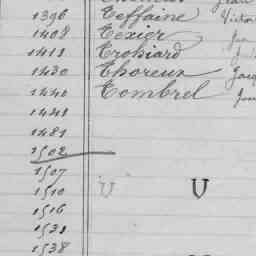 1396 Teffaine Victor
1408 Texier Jea
1412 Trohiard
1430 Thoreux Jacq
1440 Tombrel
1448
1481
1502
1507
1510 U U
1516
1531
1538